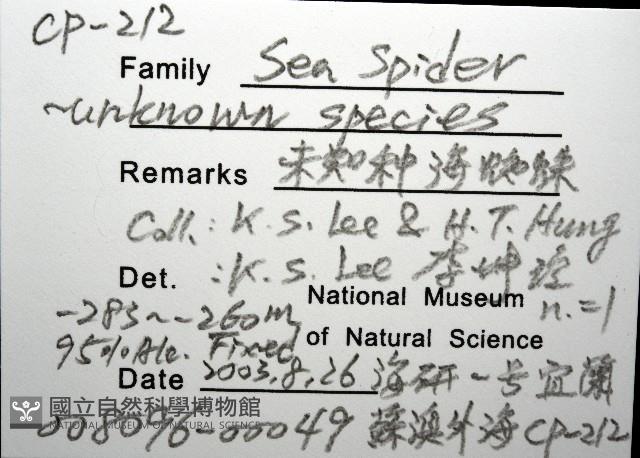 CP-212
Family Sea Spider
~unknown species
Remarks 未知种海蜘蛛
Coll.: K. S. Lee & H. T. Hung
Det. : K. S. Lee 李坤瑄
National Museum n.=1
-283~-260m
of Natural Science
95% Alc. Fixed
Date 2003.8.26 海研一号宜蘭
國立自然科學博物館
NATIONAL MUSEUM OF NATURAL SCIENCE
008096-00049 蘇澳外海 CP-212